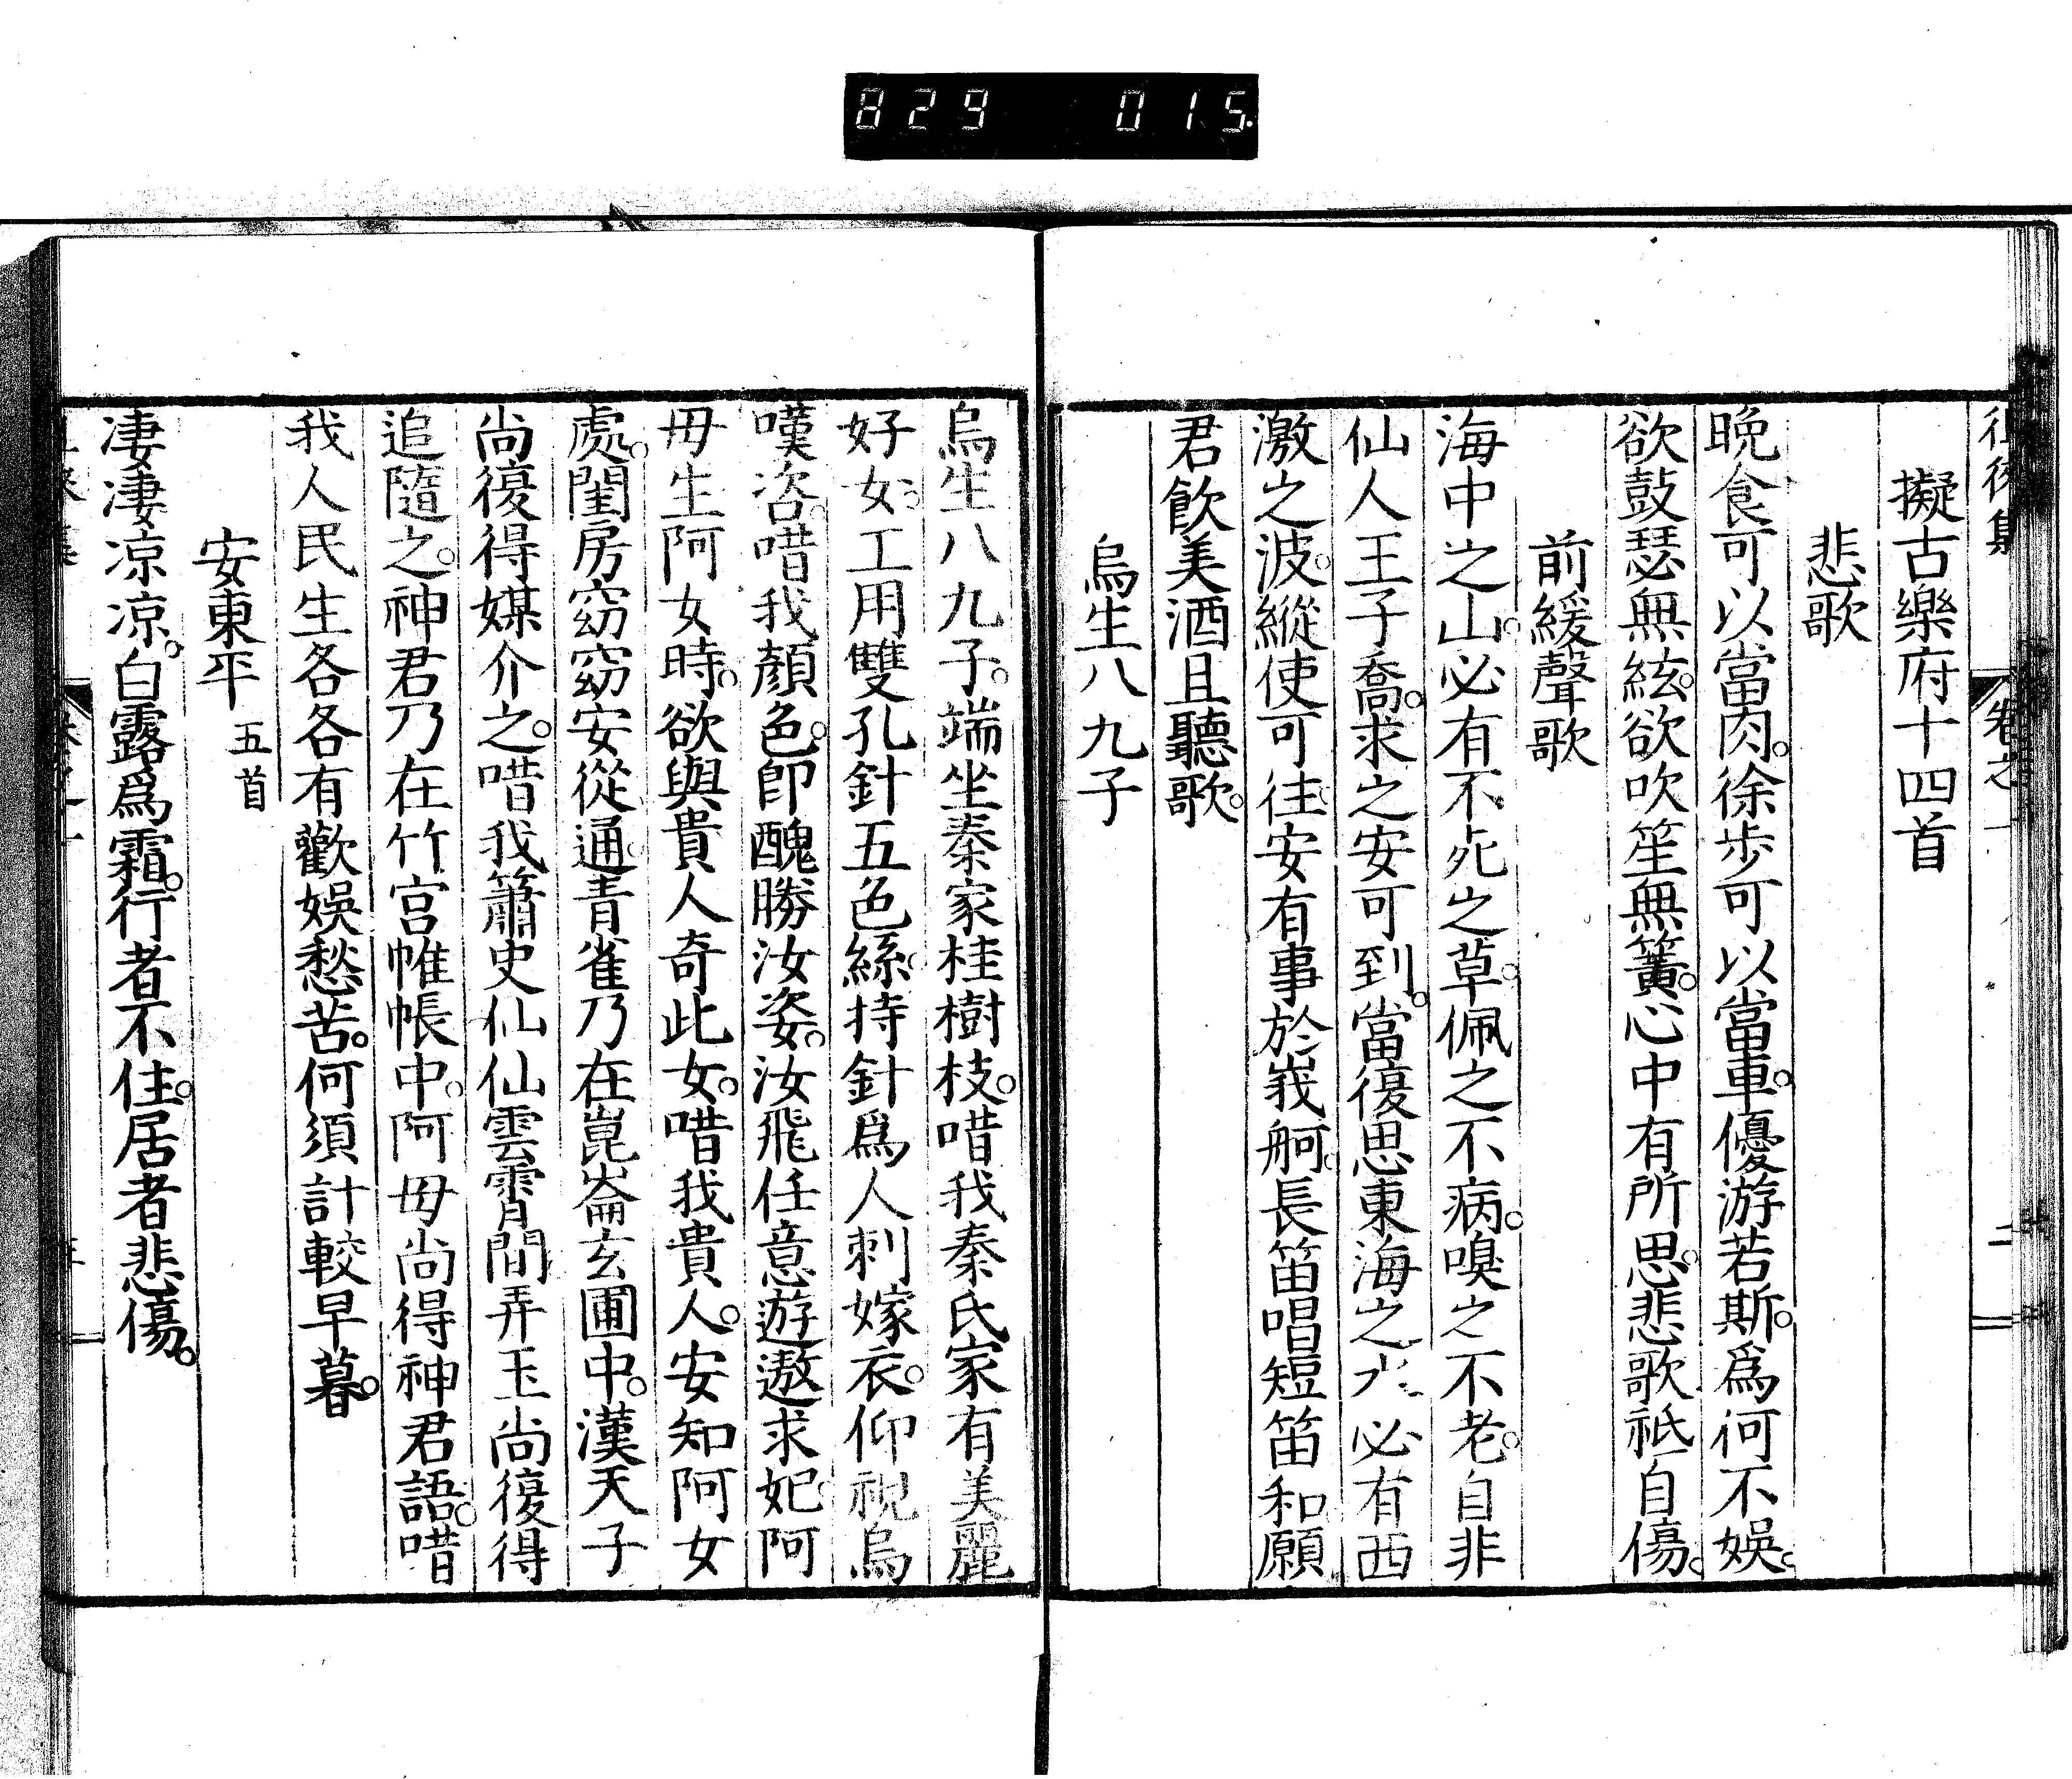 829 015
卷之一
二
擬古樂府十四首
悲歌
晚食可以當肉。徐步可以當車。優游若斯。爲何不娛。
欲鼓瑟無絃。欲吹笙無簧。心中有所思。悲歌祇自傷。
前緩聲歌
海中之山。必有不死之草。佩之不病。嗅之不老。自非
仙人王子喬。求之安可到。當復思東海之水必有西
激之波。縱使可往安有事於峩舸。長笛唱短笛和。願
君飲美酒且聽歌。
烏生八九子
烏生八九子。端坐秦家桂樹枝。唶我秦氏家有美麗
好女。工用雙孔針五色絲。持針爲人刺嫁衣。仰視烏
嘆咨。唶我顏色。卽醜勝汝姿。汝飛任意遊遨求妃。阿
毋生阿女時。欲與貴人奇此女。唶我貴人。安知阿女
處。閨房窈窈安從通。青雀乃在崑崙玄圃中。漢天子
尚復得媒介之。唶我簫史仙仙雲霄間弄玉尚復得
追隨之。神君乃在竹宮帷帳中。阿毋尚得神君語。唶
我人民生各各有歡娛愁苦。何須計較早暮。
安東平 五首
凄凄凉凉。白露爲霜。行者不住。居者悲傷。